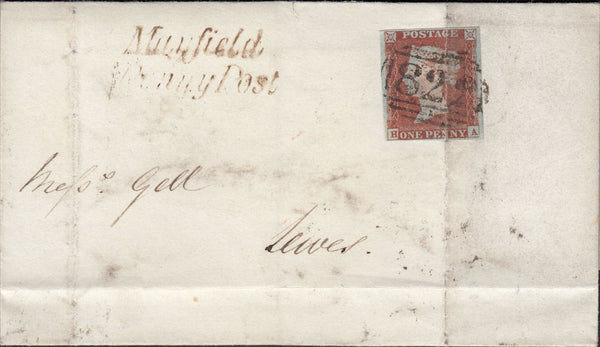 Mayfield
Penny Post
POSTAGE
822
H A
ONE PENNY
Mess.rs Gell
Lewes.